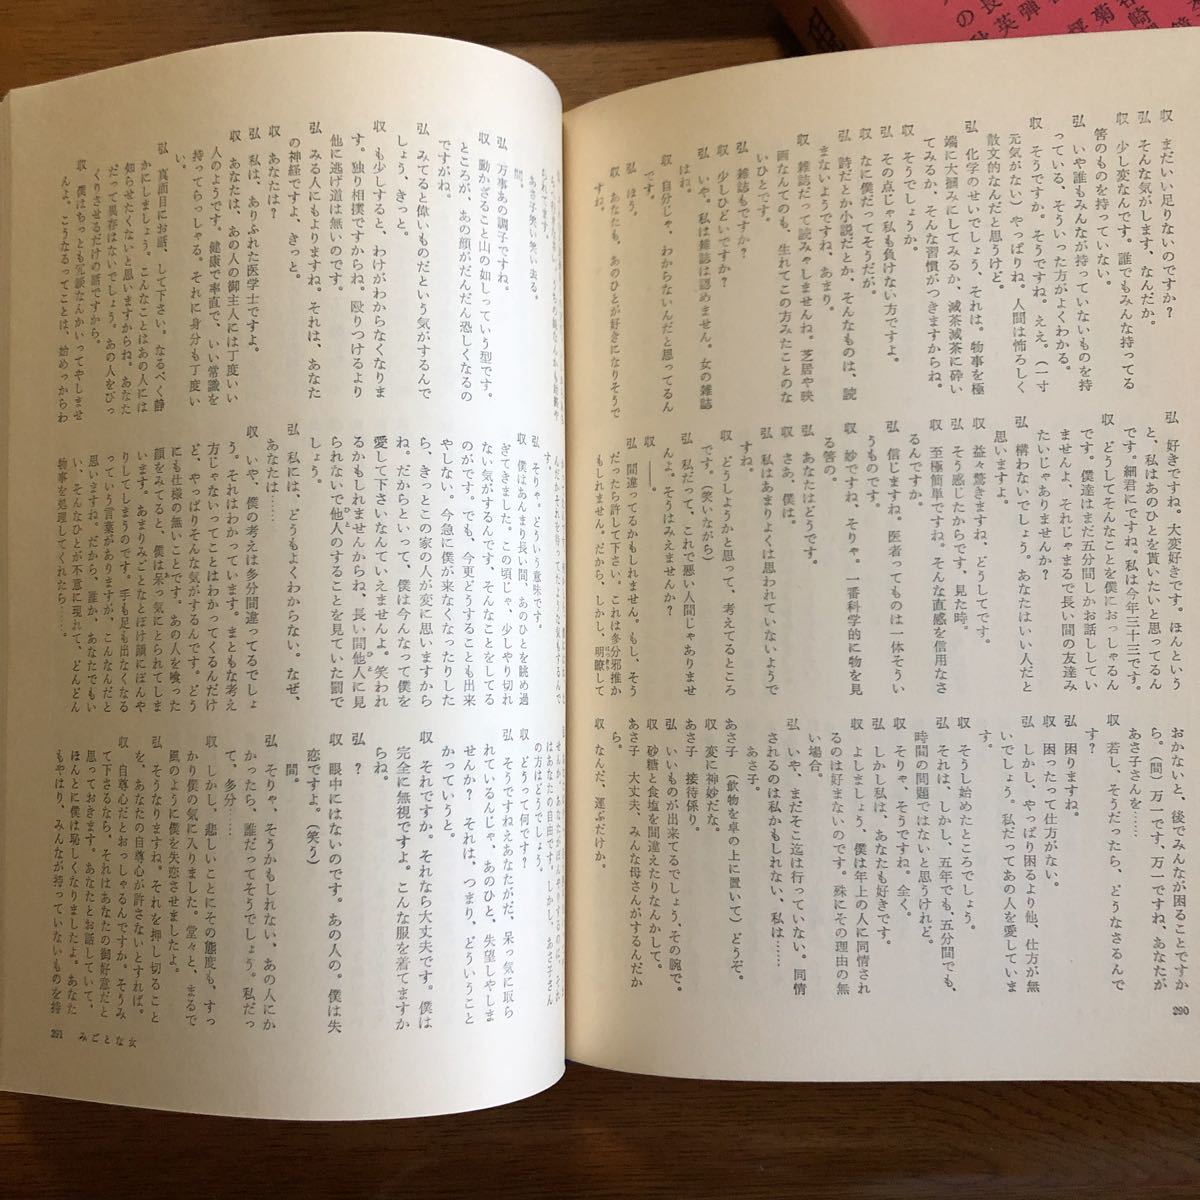 収　まだいい足りないのですか？
　そんな気がします、なんだか。
収　少し変なんです。誰でもみんな持ってる
　筈のものを持っていない。
弘　いや誰もみんなが持っていないものを持
　っている、そういった方がよくわかる。
収　そうですか。そうですね。ええ。（一寸
　元気がない）やっぱりね。人間は怖ろしく
　散文的なんだと思うけど。
弘　化学のせいでしょう、それは。物事を極
　端に大摑みにしてみるか、滅茶滅茶に砕い
　てみるか、そんな習慣がつきますからね。
収　そうでしょうか。
弘　その点じゃ私も負けない方ですよ。
収　なに僕だってそうだが。
弘　詩だとか小説だとか、そんなものは、読
　まないようですね、あまり。
収　雑誌だって読みゃしませんね。芝居や映
　画なんてのも、生れてこの方みたことのな
　いひとです。
弘　雑誌もですか？
収　少しひどいですか？
弘　いや、私は雑誌は認めません。女の雑誌
　はね。
収　自分じゃ、わからないんだと思ってるん
　です。
弘　ほう。
収　あなたも、あのひとが好きになりそうで
　すね。
弘　好きですね。大変好きです。ほんという
　と、私はあのひとを貰いたいと思ってるん
　です。細君にですね。私は今年三十三です。
収　どうしてそんなことを僕におっしゃるん
　です。僕達はまだ五分間しかお話ししてい
　ませんよ、それじゃまるで長い間の友達み
　たいじゃありませんか？
弘　構わないでしょう。あなたはいい人だと
　思いますよ。
収　益々驚きますね、どうしてです。
弘　そう感じたからです、見た時。
収　至極簡単ですね。そんな直感を信用なさ
　るんですか。
弘　信じますね。医者ってものは一体そうい
　うものです。
収　妙ですね、そりゃ。一番科学的に物を見
　る筈の。
弘　あなたはどうです。
収　さあ、僕は。
弘　私はあまりよくは思われていないようで
　すね。
収　どうしようかと思って、考えてるところ
　です。（笑いながら）
弘　私だって、これで悪い人間じゃありませ
　んよ。そうはみえませんか？
収　――。
弘　間違ってるかもしれません。もし、そう
　だったら許して下さい。これは多分邪推か
　もしれません。だから、しかし、明瞭して
　おかないと、後でみんなが困ることですか
　ら。（間）万一です、万一ですね、あなたが
　あさ子さんを……
収　若し、そうだったら、どうなさるんで
　す。
弘　困りますね。
収　困ったって仕方がない。
弘　しかし、やっぱり困るより他、仕方が無
　いでしょう。私だってあの人を愛していま
　す。
収　そうし始めたところでしょう。
弘　それは、しかし、五年でも、五分間でも、
　時間の問題ではないと思うけれど。
収　そりゃ、そうですね。全く。
弘　しかし私は、あなたも好きです。
収　よしましょう、僕は年上の人に同情され
　るのは好まないのです。殊にその理由の無
　い場合。
弘　いや、まだそこ迄は行っていない。同情
　されるのは私かもしれない、私は……
　あさ子。
あさ子　（飲物を卓の上に置いて）どうぞ。
収　変に神妙だな。
あさ子　接待係り。
弘　いいものが出来てるでしょう、その腕で。
収　砂糖と食塩を間違えたりなんかして。
あさ子　大丈夫、みんな母さんがするんだか
　ら。
収　なんだ、運ぶだけか。
290
　あさ子笑い笑い去る。
　間。
弘　万事あの調子ですね。
収　動かざること山の如しっていう型です。
　ところが、あの顔がだんだん恐しくなるの
　ですがね。
弘　みてると偉いものだという気がするんで
　しょう、きっと。
収　も少しすると、わけがわからなくなりま
　す。独り相撲ですからね。殴りつけるより
　他に逃げ道は無いのです。
弘　みる人にもよりますね。それは、あなた
　の神経ですよ、きっと。
収　あなたは？
弘　私は、ありふれた医学士ですよ。
収　あなたは、あの人の御主人には丁度いい
　人のようです。健康で率直で、いい常識を
　持ってらっしゃる。それに身分も丁度い
　い。
弘　真面目にお話、して下さい。なるべく静
　かにしましょう。こんなことはあの人には
　知らせたくないと思いますからね。あなた
　だって異存はないでしょう。あの人をびっ
　くりさせるだけの話ですから。
収　僕はちっとも冗談なんかいってやしませ
　んよ。こうなるってことは、始めっからわ
弘　そりゃ、どういう意味です。
収　僕はあんまり長い間、あのひとを眺め過
　ぎてきました。この頃じゃ、少しやり切れ
　ない気がするんです、そんなことをしてる
　のがです。でも、今更どうすることも出来
　やしない。今急に僕が来なくなったりした
　ら、きっとこの家の人が変に思いますから
　ね。だからといって、僕は今んなって僕を
　愛して下さいなんていえませんよ。笑われ
　るかもしれませんからね、長い間他人に見
　られないで他人のすることを見ていた罰で
　しょう。
弘　私には、どうもよくわからない。なぜ、
　あなたは……
収　いや、僕の考えは多分間違ってるでしょ
　う。それはわかっています。まともな考え
　方じゃないってことはわかってくるんだけ
　ど、やっぱりそんな気がするんです。どう
　にも仕様の無いことです。あの人を喰った
　顔をみてると、僕は呆っ気にとられてしま
　います。あまりみごとなとぼけ顔にぼんや
　りしてしまうのです。手も足も出なくなる
　っていう言葉がありますが、あれなんだと
　思いますね。だから、誰か、あなたでもい
　い、そんなひとが不意に現れて、どんどん
　物事を処理してくれたら……。
　はあなたの自由です。しかし、あさ子さん
　の方はどうでしょう。
収　どうって何です？
弘　そうですねえあなたがだ、呆っ気に取ら
　れているんじゃ、あのひと、失望しやしま
　せんか？　それは、つまり、どういうこと
　かっていうと。
収　それですか。それなら大丈夫です。僕は
　完全に無視ですよ。こんな服を着てますか
　らね。
弘　？
収　眼中にはないのです。あの人の。僕は失
　恋ですよ。（笑う）
　間。
弘　そりゃ、そうかもしれない、あの人にか
　かったら、誰だってそうでしょう。私だっ
　て、多分……
収　しかし、悲しいことにその態度も、すっ
　かり僕の気に入りました。堂々と、まるで
　風のように僕を失恋させましたよ。
弘　そうなりますね。それを押し切ること
　を、あなたの自尊心が許さないとすれば。
収　自尊心だとおっしゃるんですか。そうみ
　て下さるなら、それはあなたの御好意だと
　思っておきます。あなたとお話していて、
　ほんとに僕は恥しくなりましたよ。あなた
　もやはり、みんなが持っていないものを持
291　みごとな女